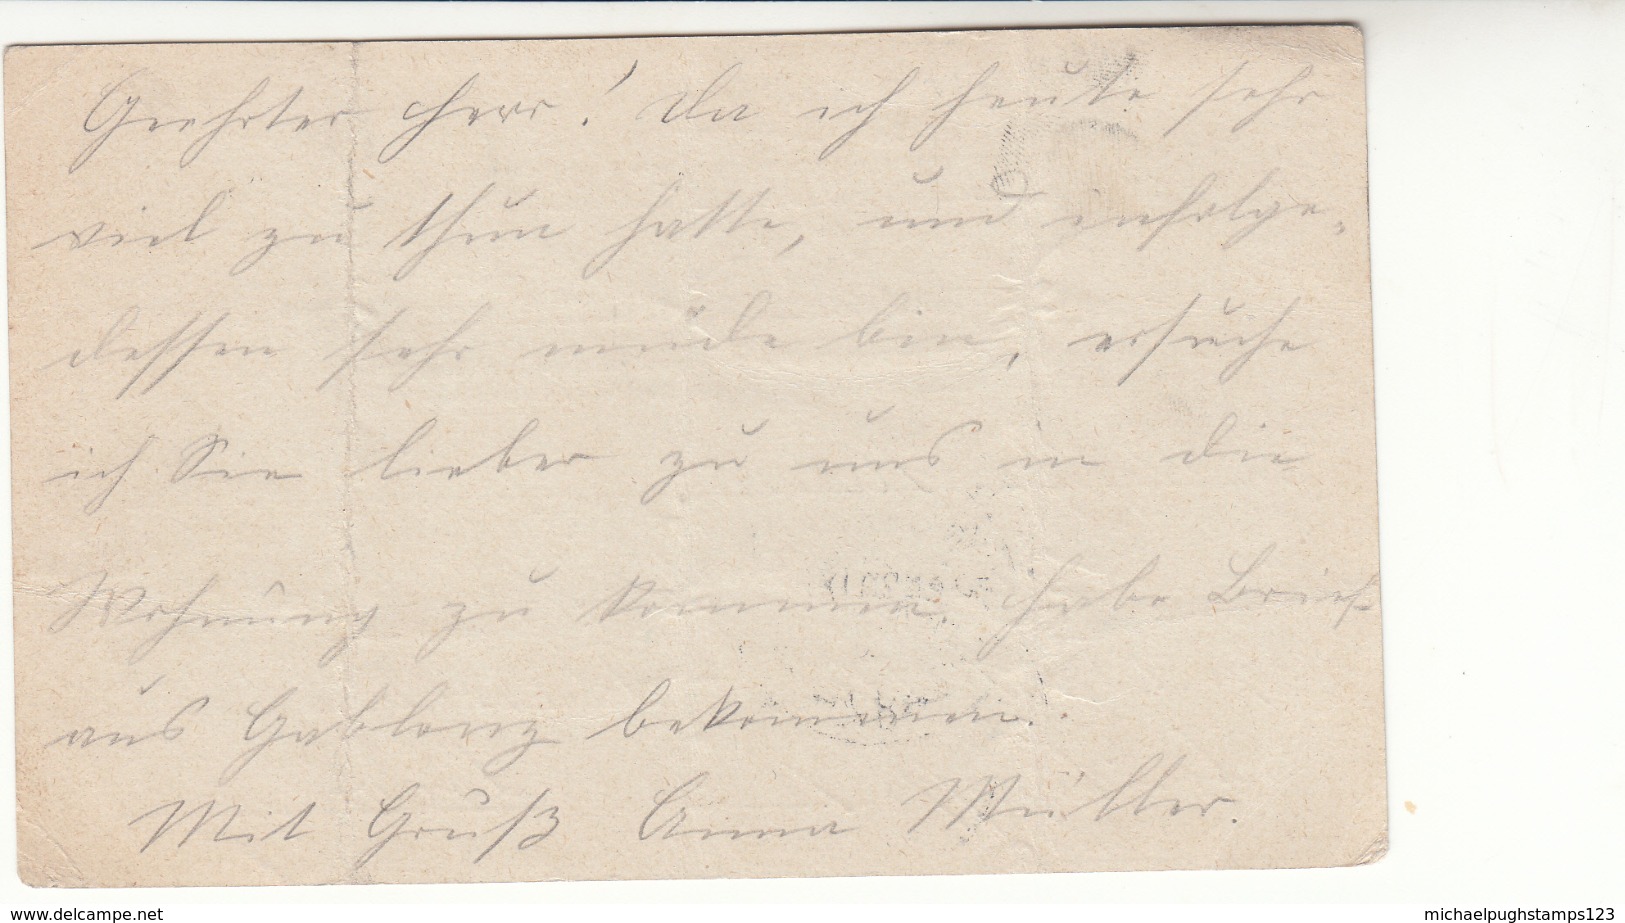 Geehrter Herr! Da ich heute sehr
viel zu thun hatte, und infolge-
dessen sehr müde bin, ersuche
ich Sie lieber zu uns in die
Wohnung zu kommen, habe Brief
aus Gablonz bekommen.
Mit Gruß Anna Müller.
www.delcampe.net
michaelpughstamps123